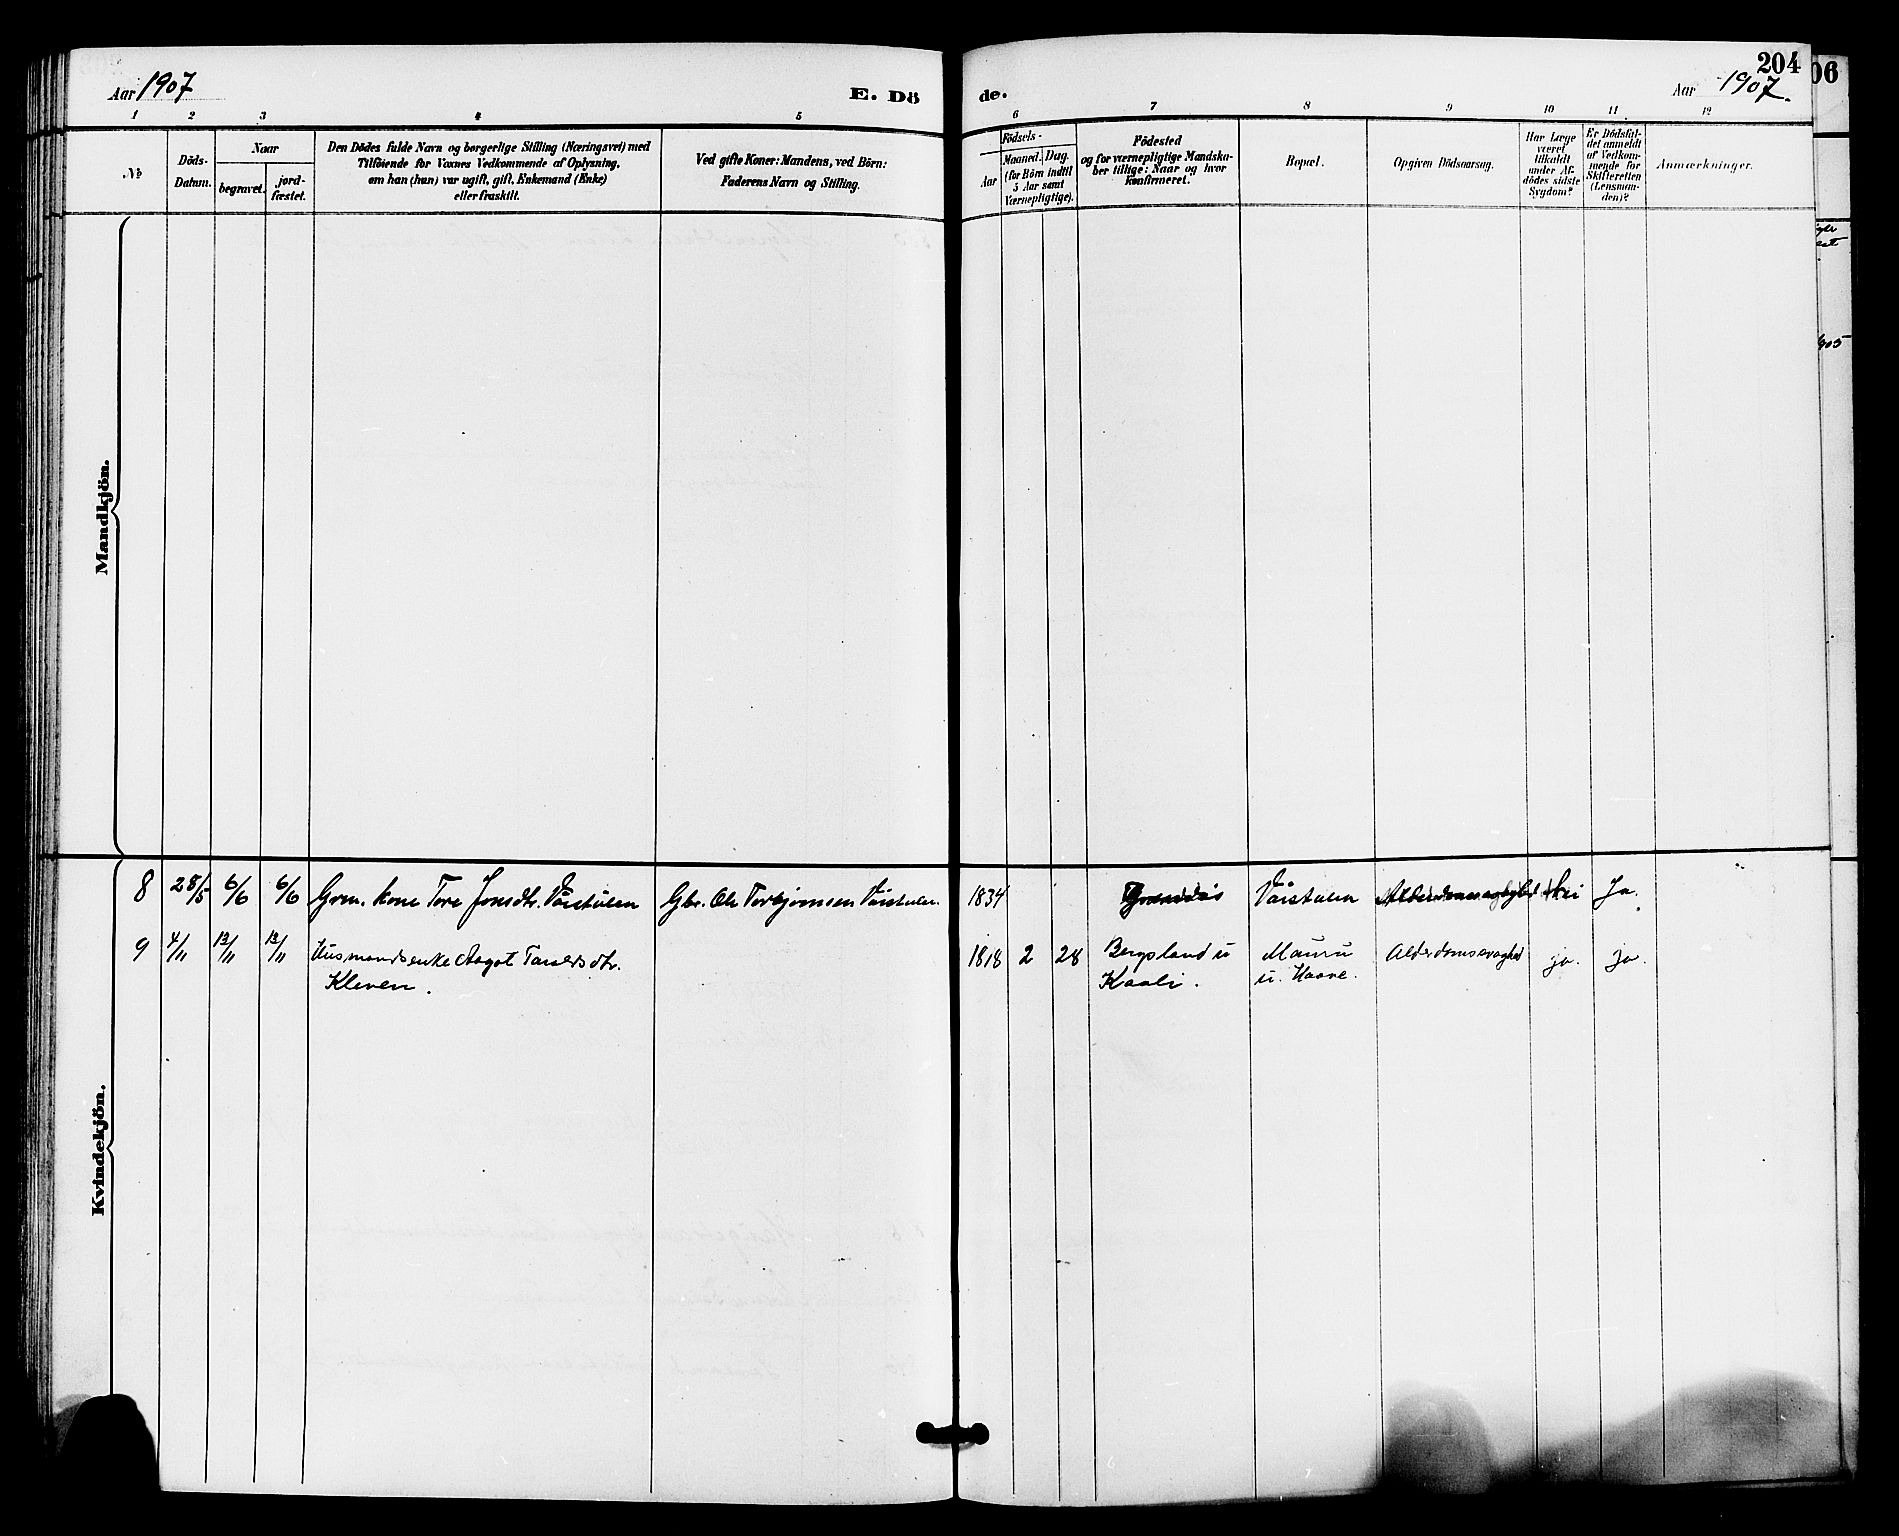 Aar 1907
E. Dö
de.
204
Aar 1907.
06
1 2 3 4 5 6 7 8 9 10 11 12
№
Döds-
Datum.
Naar
begravet.
jord-
fæstet.
Den Dödes fulde Navn og borgerlige Stilling (Næringsvei) med
Tilföiende for Voxnes Vedkommende af Oplysning,
om han (hun) var ugift, gift, Enkemand (Enke)
eller fraskilt.
Ved gifte Koner: Mandens, ved Börn:
Faderens Navn og Stilling.
Födsels-
Aar
Maaned.
Dag.
(for Börn indtil
5 Aar samt
Værnepligtige).
Födested
og for værnepligtige Mandska-
ber tillige: Naar og hvor
konfirmeret.
Bopæl.
Opgiven Dödsaarsag.
Har Læge
været
tilkaldt
under Af-
dödes sidste
Sygdom?
Er Dödsfal-
det anmeldt
af Vedkom-
mende for
Skifteretten
(Lensman-
den)?
Anmærkninger.
Mandkjön.
Kvindekjön.
8 28/5 6/6 6/6 Grm. kone Tore Jonsdtr. Vaastulen Gbr. Ole Torbjørnsen Vaastulen 1834 Vaastulen Alderdomssvaghed Nei Ja.
9 4/11 13/11 13/11 Husmandsenke Aagot Tarseldsdtr. 1818 2 28 Bergsland u Mauru Alderdomssvaghed ja. ja.
Kleven.
Kaali.
u. Haave.